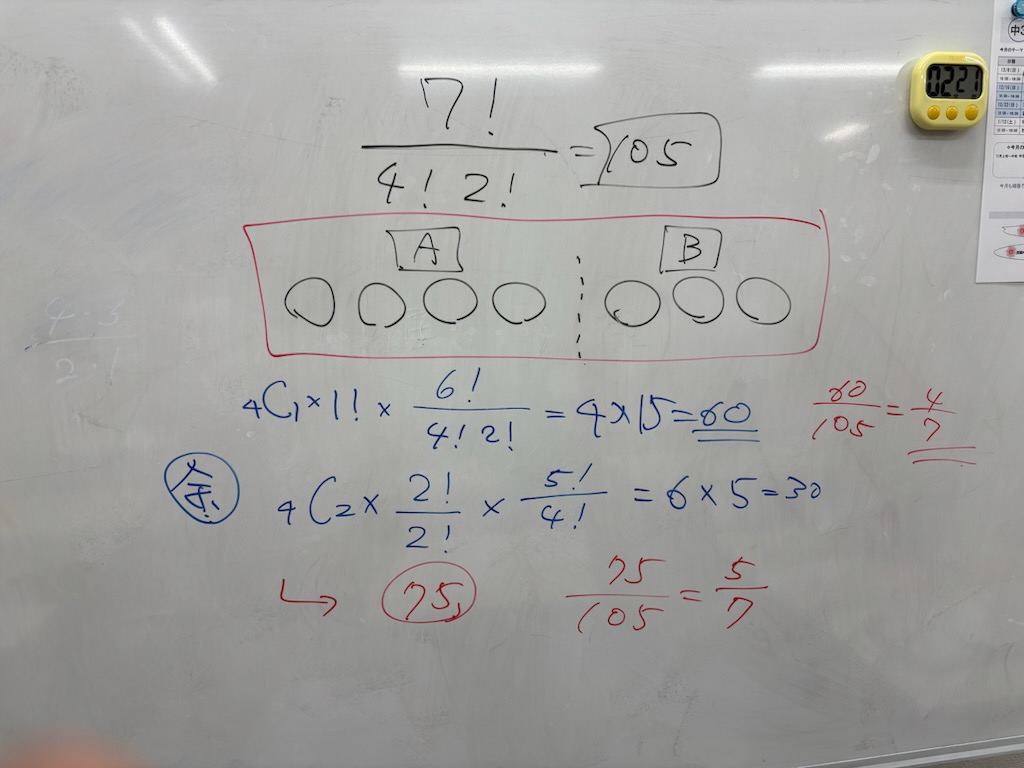 7! / 4! 2! = 105
A B
₄C₁ × 1! × 6! / 4! 2! = 4 × 15 = 60
60 / 105 = 4 / 7
₄C₂ × 2! / 2! × 5! / 4! = 6 × 5 = 30
↳ 75
75 / 105 = 5 / 7
4・3 / 2・1
02 21